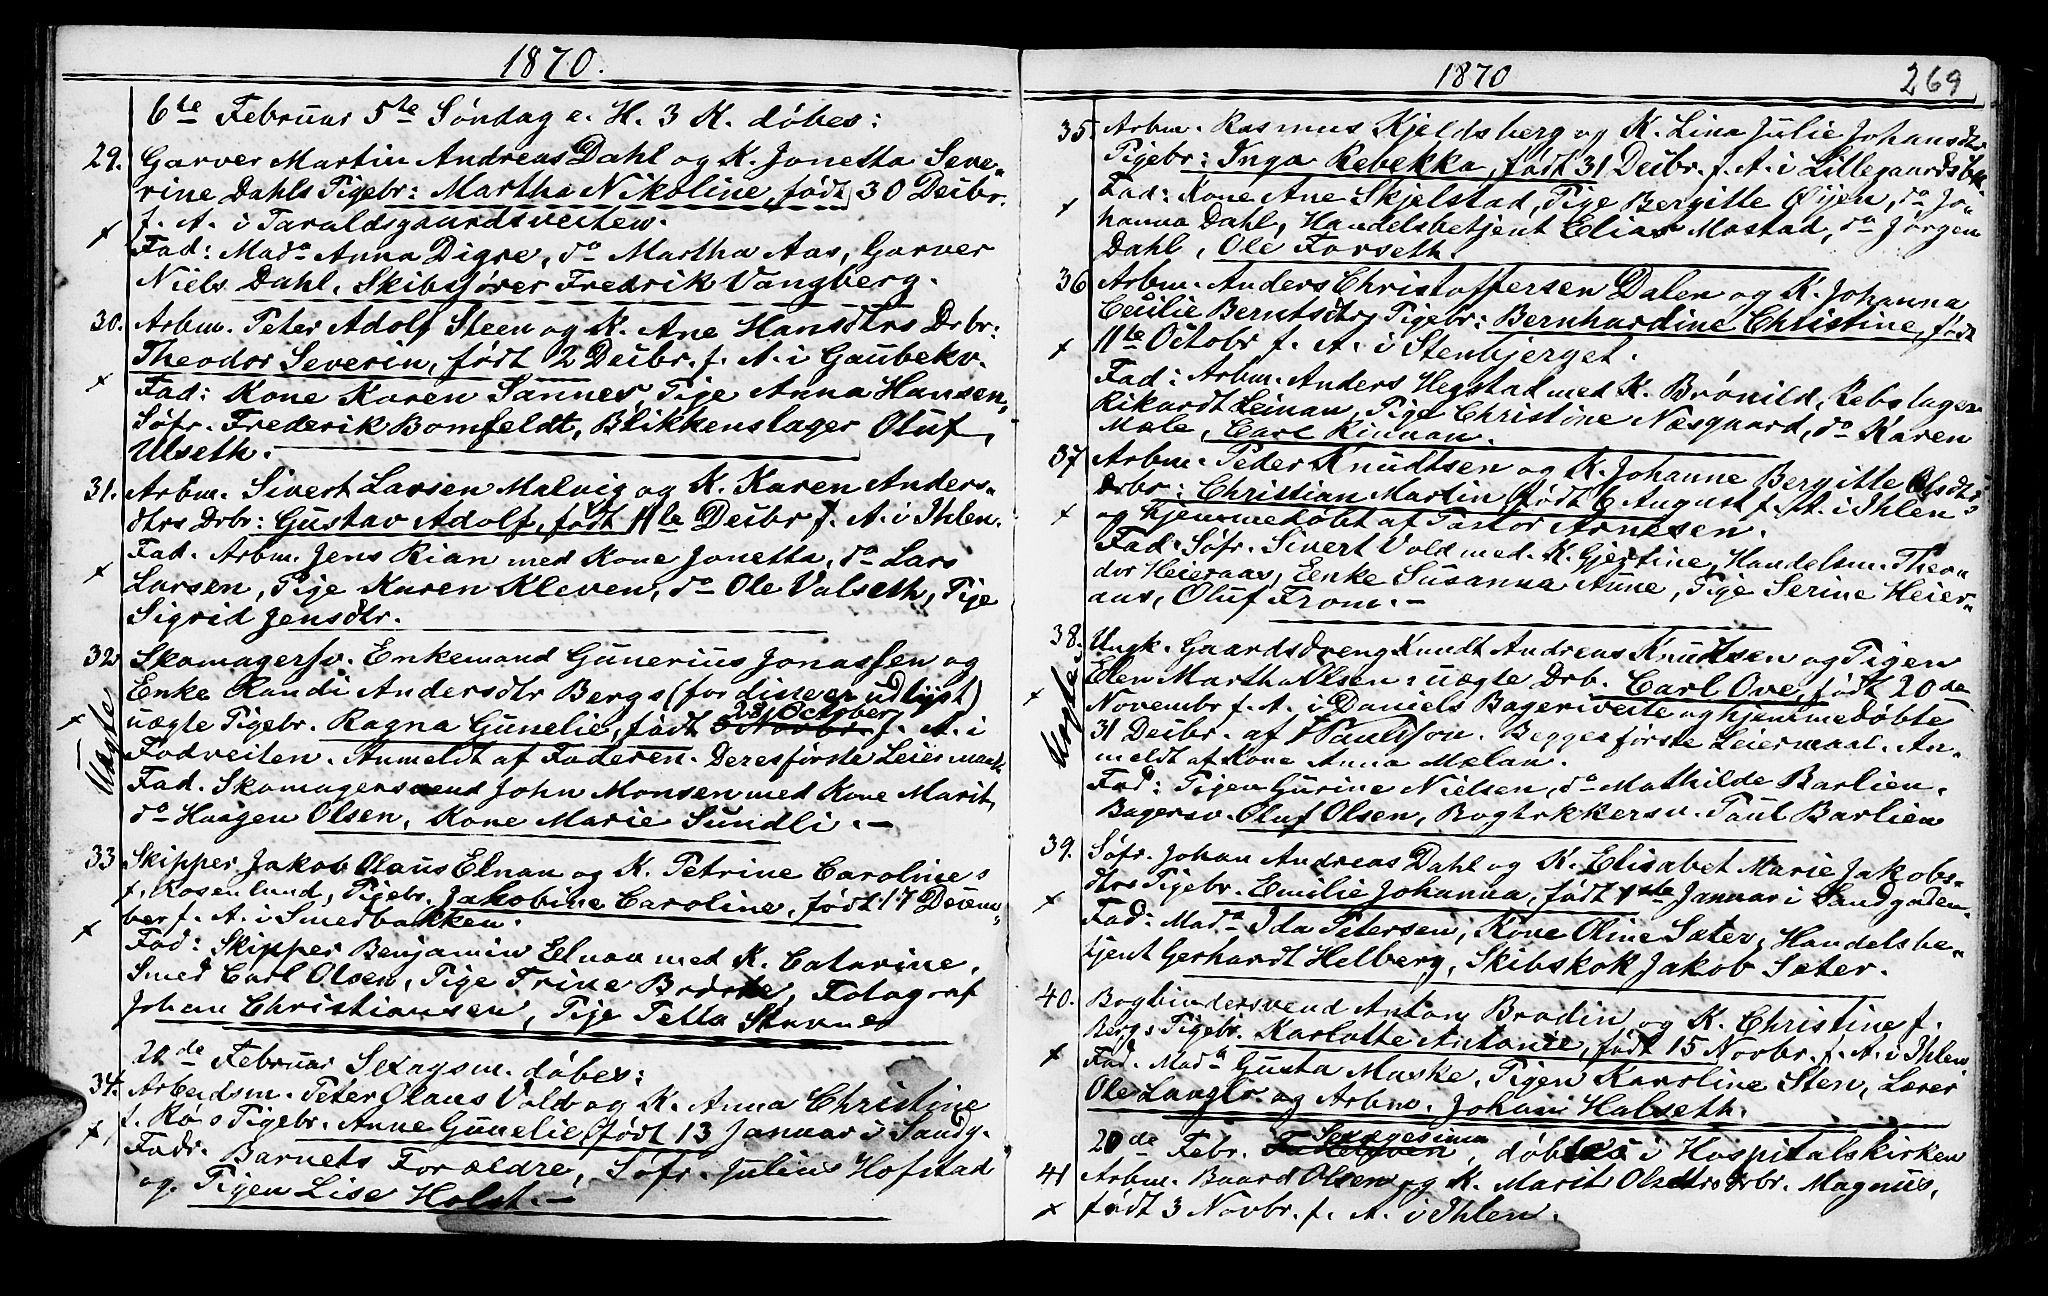 1870.
6te Februar 5te Søndag e. H. 3 K. døbes:
29. Garver Martin Andreas Dahl og K. Jonetta Seve-
rine Dahls Pigebr: Martha Nikoline, født 30 Decbr.
f. A. i Taraldsgaardsveiten.
x Fad: Mad. Anna Digre, do Martha Aas, Garver
Niels Dahl, Skibsfører Fredrik Vangberg.
30. Arbm. Peter Adolf Steen og K. Ane Hansdtrs Drbr:
Theodor Severin, født 2 Decbr. f. A. i Gaubekv.
x Fad: Kone Karen Sannes, Pige Anna Hansen,
Søfr. Frederik Bomfeldt, Blikkenslager Oluf
Ulseth.
31. Arbm. Sivert Larsen Malvig og K. Karen Anders-
dtrs Drbr: Gustav Adolf, født 11te Decbr f. A. i Ihlen.
Fad. Arbm. Jens Rian med Kone Jonetta, do Lars
x Larsen, Pige Karen Kleven, do Ole Valseth, Pige
Sigrid Jensdtr.
32 Skomagersv. Enkemand Gunerius Jonassen og
Enke Randi Andersdtr Bergs (for dine er udlyst)
x Uægte uægte Pigebr. Ragna Gunelie, født 23 October 5 Novbr. f. A. i
Fadveiten. Anmeldt af Faderen. Deres første Leiermaal.
Fad. Skomagersvend John Monsen med Kone Marit,
do Haagen Olsen, Kone Marie Sundli.
33 Skipper Jakob Olaus Elnan og K. Petrine Carolines
f. Rosenlund, Pigebr. Jakobine Caroline, født 17 Decem-
ber f. A. i Smedbakken.
x Fad: Skipper Benjamin Elnan med K. Catarine,
Smed Carl Olsen, Pige Trine Fotograf
Johan Christiansen, Pige Petta Stavne
20de Februar Sexagsm. døbes:
34. Arbeidsm. Peter Olaus Vold og K. Anna Christine
f. Røs Pigebr. Anne Gunelie, født 13 Januar i Sandg.
x Fadr. Barnets Forældre, Søfr. Julius Hofstad
og Pigen Lise Holst.
1870 269
35 Arbm. Rasmus Kjeldsberg og K. Lina Julie Johansdtr
Pigebr: Inga Rebekka, født 31 Decbr. f. A. i Lillegaardsbk.
x Fad: Kone Ane Skjelstad, Pige Bergitte Øijen, do Jo-
hanna Dahl, Handelsbetjent Elias Mostad, do Jørgen
Dahl, Ole Forseth.
36 Arbm. Anders Christoffersen Dalen og K. Johanna
Cecilie Berntsdtrs Pigebr: Bernhardine Christine, født
x 11te Octobr f. A. i Stenbjerget.
Fad: Arbm. Anders Hegstad med K. Brønild, Rebslager
Rikardt Leinan, Pige Christine Næsgaard, do Karen
Mæle, Carl Rinnan.
37 Arbm. Peder Knudtsen og K. Johanne Bergitte Olsdtrs
Drbr: Christian Martin født 6 August f. A. i Ihlen
x og hjemmedøbt af Pastor Arnesen.
Fad: Søfr. Sivert Vold med K. Gjertine, Handelsm. Theo-
dor Heieraas, Enke Susanna Aune, Pige Serine Heier-
aas, Oluf From.
38. Ungk. Gaardsdreng Knudt Andreas Knudtsen og Pigen
x Uægte Elen Martha Olsens uægte Drb. Carl Ove, født 20de
Novembr f. A. i Daniels Bageriveite og hjemmedøbte
31 Decbr. af Paulsson. Begges første Leiermaal. An-
meldt af Kone Anna Mælan.
Fad: Pigen Gurine Nielsen, do Mathilde Barlien,
Bagersv. Oluf Olsen, Bogtrkkersv. Paul Barlien
39. Søfr. Johan Andreas Dahl og K. Elisabet Marie Jakobs-
dtrs Pigebr. Emilie Johanna, født 1ste Januar i Sandgaden.
x Fad: Mada Ida Petersen, Kone Oline Sæter, Handelsbe-
tjent Gerhardt Helberg, Skibskok Jakob Sæter.
40. Bogbindersvend Anton Brodin og K. Christine f.
Bergs Pigebr. Karlotte Antonie, født 15 Novbr. f. A. i Ihlen
x Fad. Mada Gusta Maske, Pigen Karoline Sten, Lærer
Ole Langlo og Arbm. Johan Halseth.
20de Febr. Sexagesima Fastelaven, døbtes i Hospitalskirken
41 Arbm. Baard Olsen og K. Marit Olsdtrs Drbr. Magnus,
x født 3 Novbr. f. A. i Ihlen.